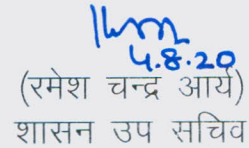 4.8.20
(रमेश चन्द्र आर्य)
शासन उप सचिव